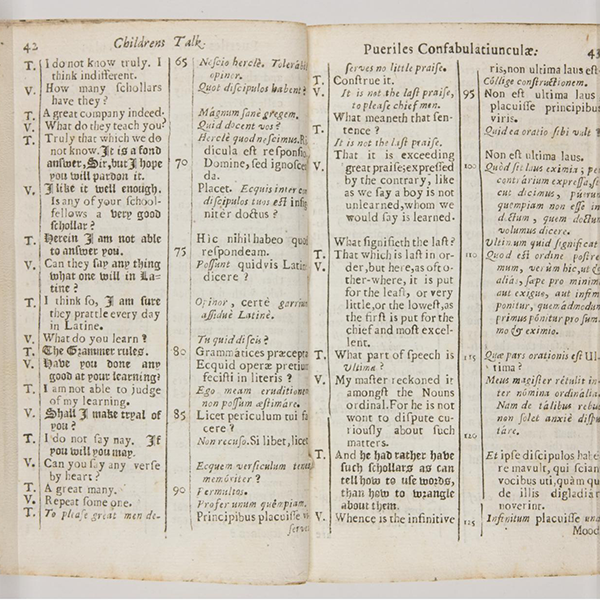 42 Childrens Talk.
T. I do not know truly. I
think indifferent.
V. How many schollars
have they?
T. A great company indeed.
V. What do they teach you?
T. Truly that which we do
not know. It is a fond
answer, Sir, but I hope
you will pardon it.
V. I like it well enough.
Is any of your school-
fellows a very good
schollar?
T. Herein I am not able
to answer you.
V. Can they say any thing
what one will in La-
tine?
T. I think so, I am sure
they prattle every day
in Latine.
V. What do you learn?
T. The Grammer rules.
V. Have you done any
good at your learning?
T. I am not able to judge
of my learning.
V. Shall I make tryal of
you?
T. I do not say nay. If
you will you may.
V. Can you say any verse
by heart?
T. A great many.
V. Repeat some one.
T. To please great men de-
65 Nescio herclè. Tolerabi
opinor.
Quot discipulos habent?
Magnum sanè gregem.
Quid docent vos?
Herclè quod nescimus. Ri
dicula est responsio
70 Domine, sed ignosce
da.
Placet. Ecquis inter con
discipulos tuos est insig
niter doctus?
Hic nihil habeo quod
75 respondeam.
Possunt quidvis Latin
dicere?
Opinor, certè garriun
assiduè Latinè.
Tu quid discis?
80 Grammatices præcepta
Ecquid operæ pretium
fecisti in literis?
Ego meam eruditionem
non possum æstimare.
85 Licet periculum tui fa
cere?
Non recuso. Si libet, licet
Ecquem versiculum tenes
memoriter?
90 Permultos.
Profer unum quempiam.
Principibus placuisse vi
serves
Pueriles Confabulatiunculæ. 43
serves no little praise.
T. Construe it.
V. It is not the last praise,
to please chief men.
What meaneth that sen-
T. tence?
It is not the last praise.
That it is exceeding
V. great praise; expressed
by the contrary, like
as we say a boy is not
unlearned, whom we
would say is learned.
What signifieth the last?
T. That which is last in or-
V. der, but here, as oft o-
ther-where, it is put
for the least, or very
little, or the lowest, as
the first is put for the
chief and most excel-
lent.
T. What part of speech is
Ultima?
V. My master reckoned it
amongst the Nouns
ordinal. For he is not
wont to dispute cu-
riously about such
matters.
T. And he had rather have
such schollars as can
tell how to use words,
than how to wrangle
about them.
V. Whence is the infinitive
ris, non ultima laus est.
Cóllige constructionem.
95 Non est ultima laus
placuisse principibus
viris.
Quid ea oratio sibi vult?
Non est ultima laus.
100 Quòd sit laus eximia; per
contrarium expressa, si
cut dicimus, puerum
quempiam non esse in
doctum, quem doctum
volumus dicere.
Ultimum quid significat
110 Quod est ordine postre
mum, verùm hic, ut &
aliàs, sæpe pro minimo
aut exiguo, aut infimo
ponitur, quemadmodum
primus pónitur pro sum
mo & eximio.
115 Quæ pars orationis est Ul
tima?
Meus magister rétulit in
ter nómina ordinália.
Nam de tálibus rebus
non solet anxiè dispu
120 táre.
Et ipse discipulos habe
re mavult, qui sciant
vocibus uti, quàm qui
de illis digladiari
noverint.
125 Infinitum placuisse und
Mood